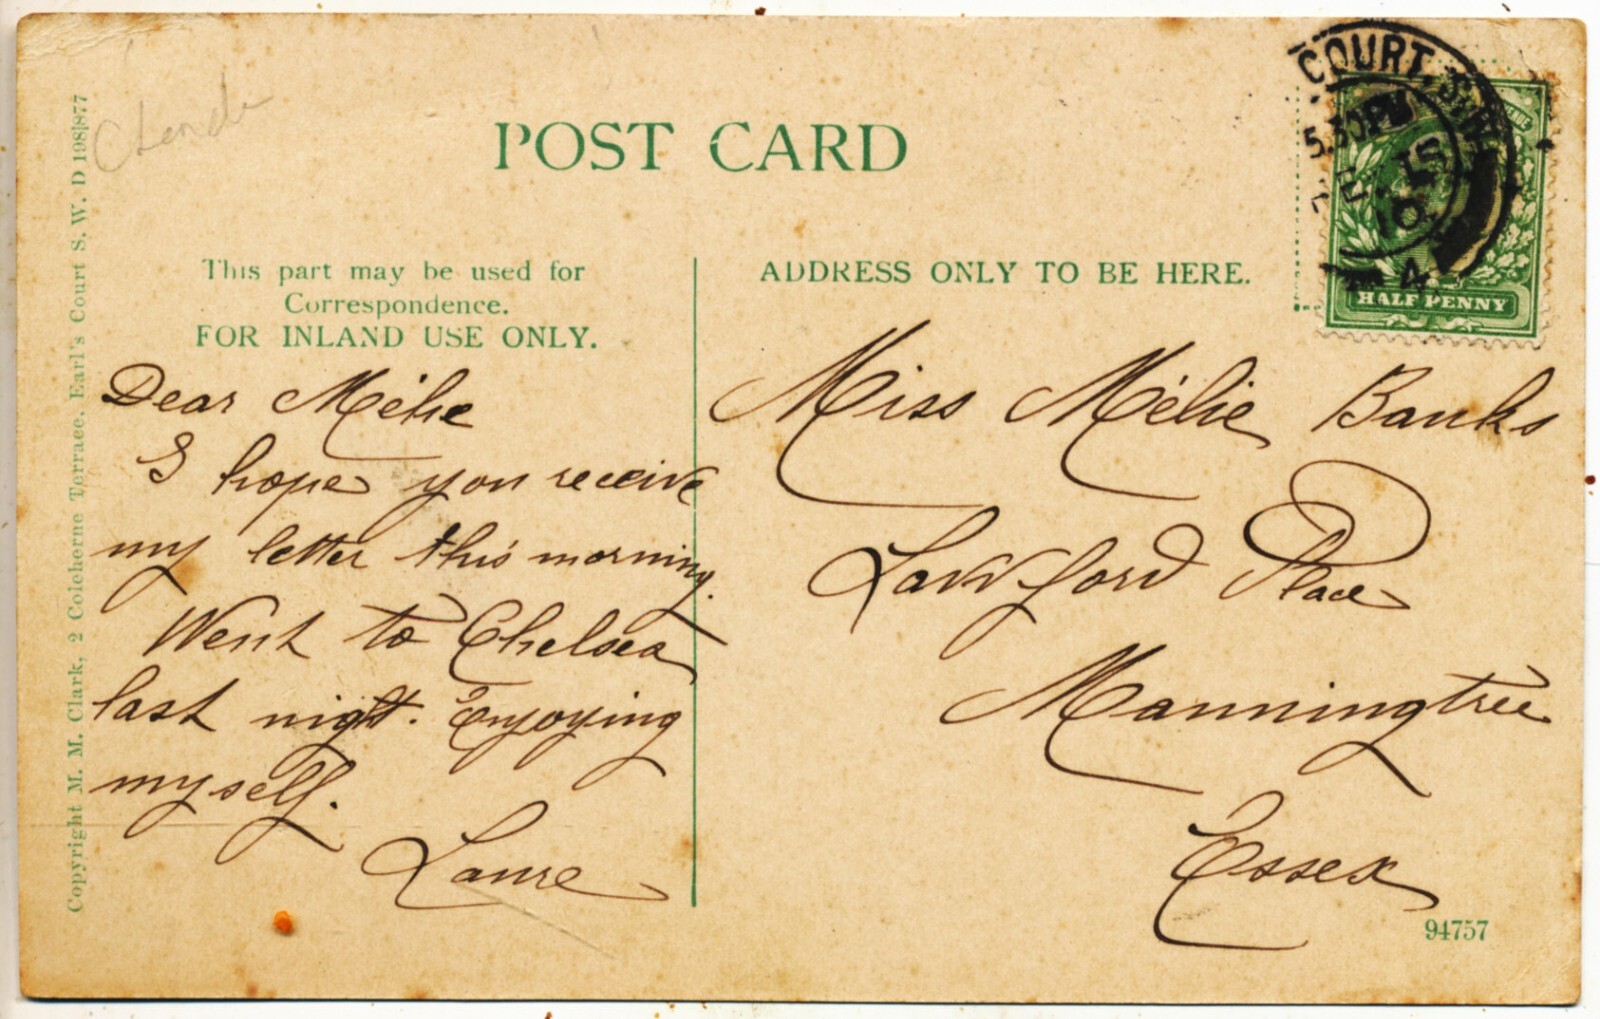 POST CARD
This part may be used for
Correspondence.
FOR INLAND USE ONLY.
ADDRESS ONLY TO BE HERE.
COURT. S.W.
5.30 PM
15
10
4
HALF PENNY
Dear Mélie
I hope you receive
my letter this morning.
Went to Chelsea
last night. Enjoying
myself.
Laure
Miss Mélie Banks
Lawford Place
Manningtree
Essex
94757
Copyright M. M. Clark, 2 Colcherne Terrace, Earl's Court S. W. D 198|877